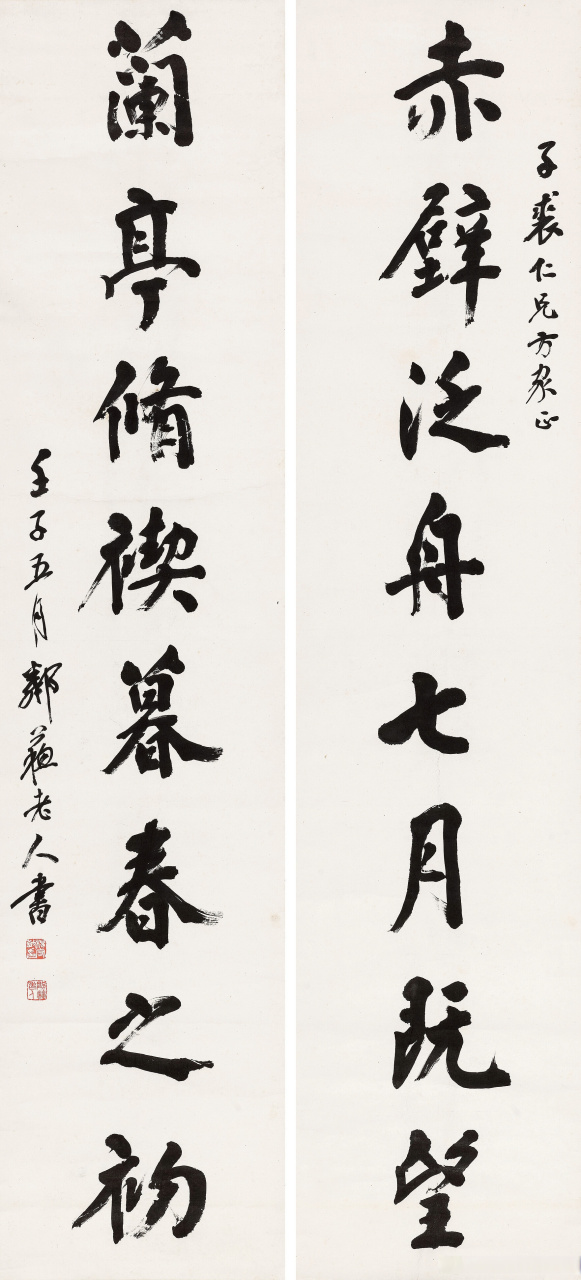 子裘仁兄方家正
赤壁泛舟七月既望
蘭亭脩禊暮春之初
壬子五月鄰蘇老人書